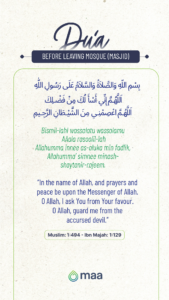 Du'a
BEFORE LEAVING MOSQUE (MASJID)
بِسْمِ اللَّهِ وَالصَّلَاةُ وَالسَّلَامُ عَلَى رَسُولِ اللَّهِ
اَللَّهُمَّ إِنِّي أَسْأَلُكَ مِنْ فَضْلِكَ
اَللَّهُمَّ اعْصِمْنِي مِنَ الشَّيْطَانِ الرَّجِيمِ
Bismil-lahi wassalatu wassalamu
Allahumma innee
"In the name of Allah, and prayers and
peace be upon the Messenger of Allah.
O Allah, I ask You from Your favour.
O Allah, guard me from the
accursed devil."
Muslim: 1:494 - Ibn Majah: 1:129
maa